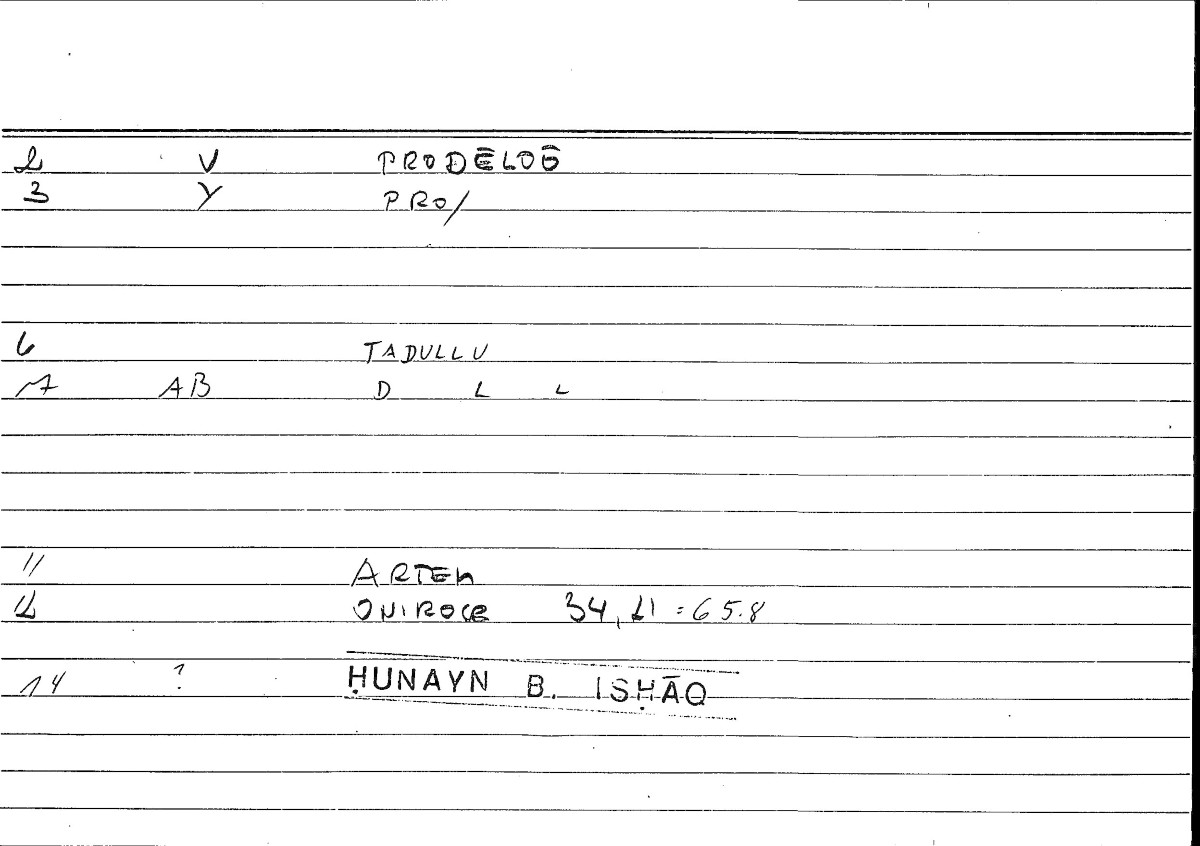 2 V PRODĒLOŌ
3 Y PRO/
6 TADULLU
7 AB D L L
11 ARTEM
12 ONIROCR 34,21 = 65.8
14 ? ḤUNAYN B. ISḤĀQ